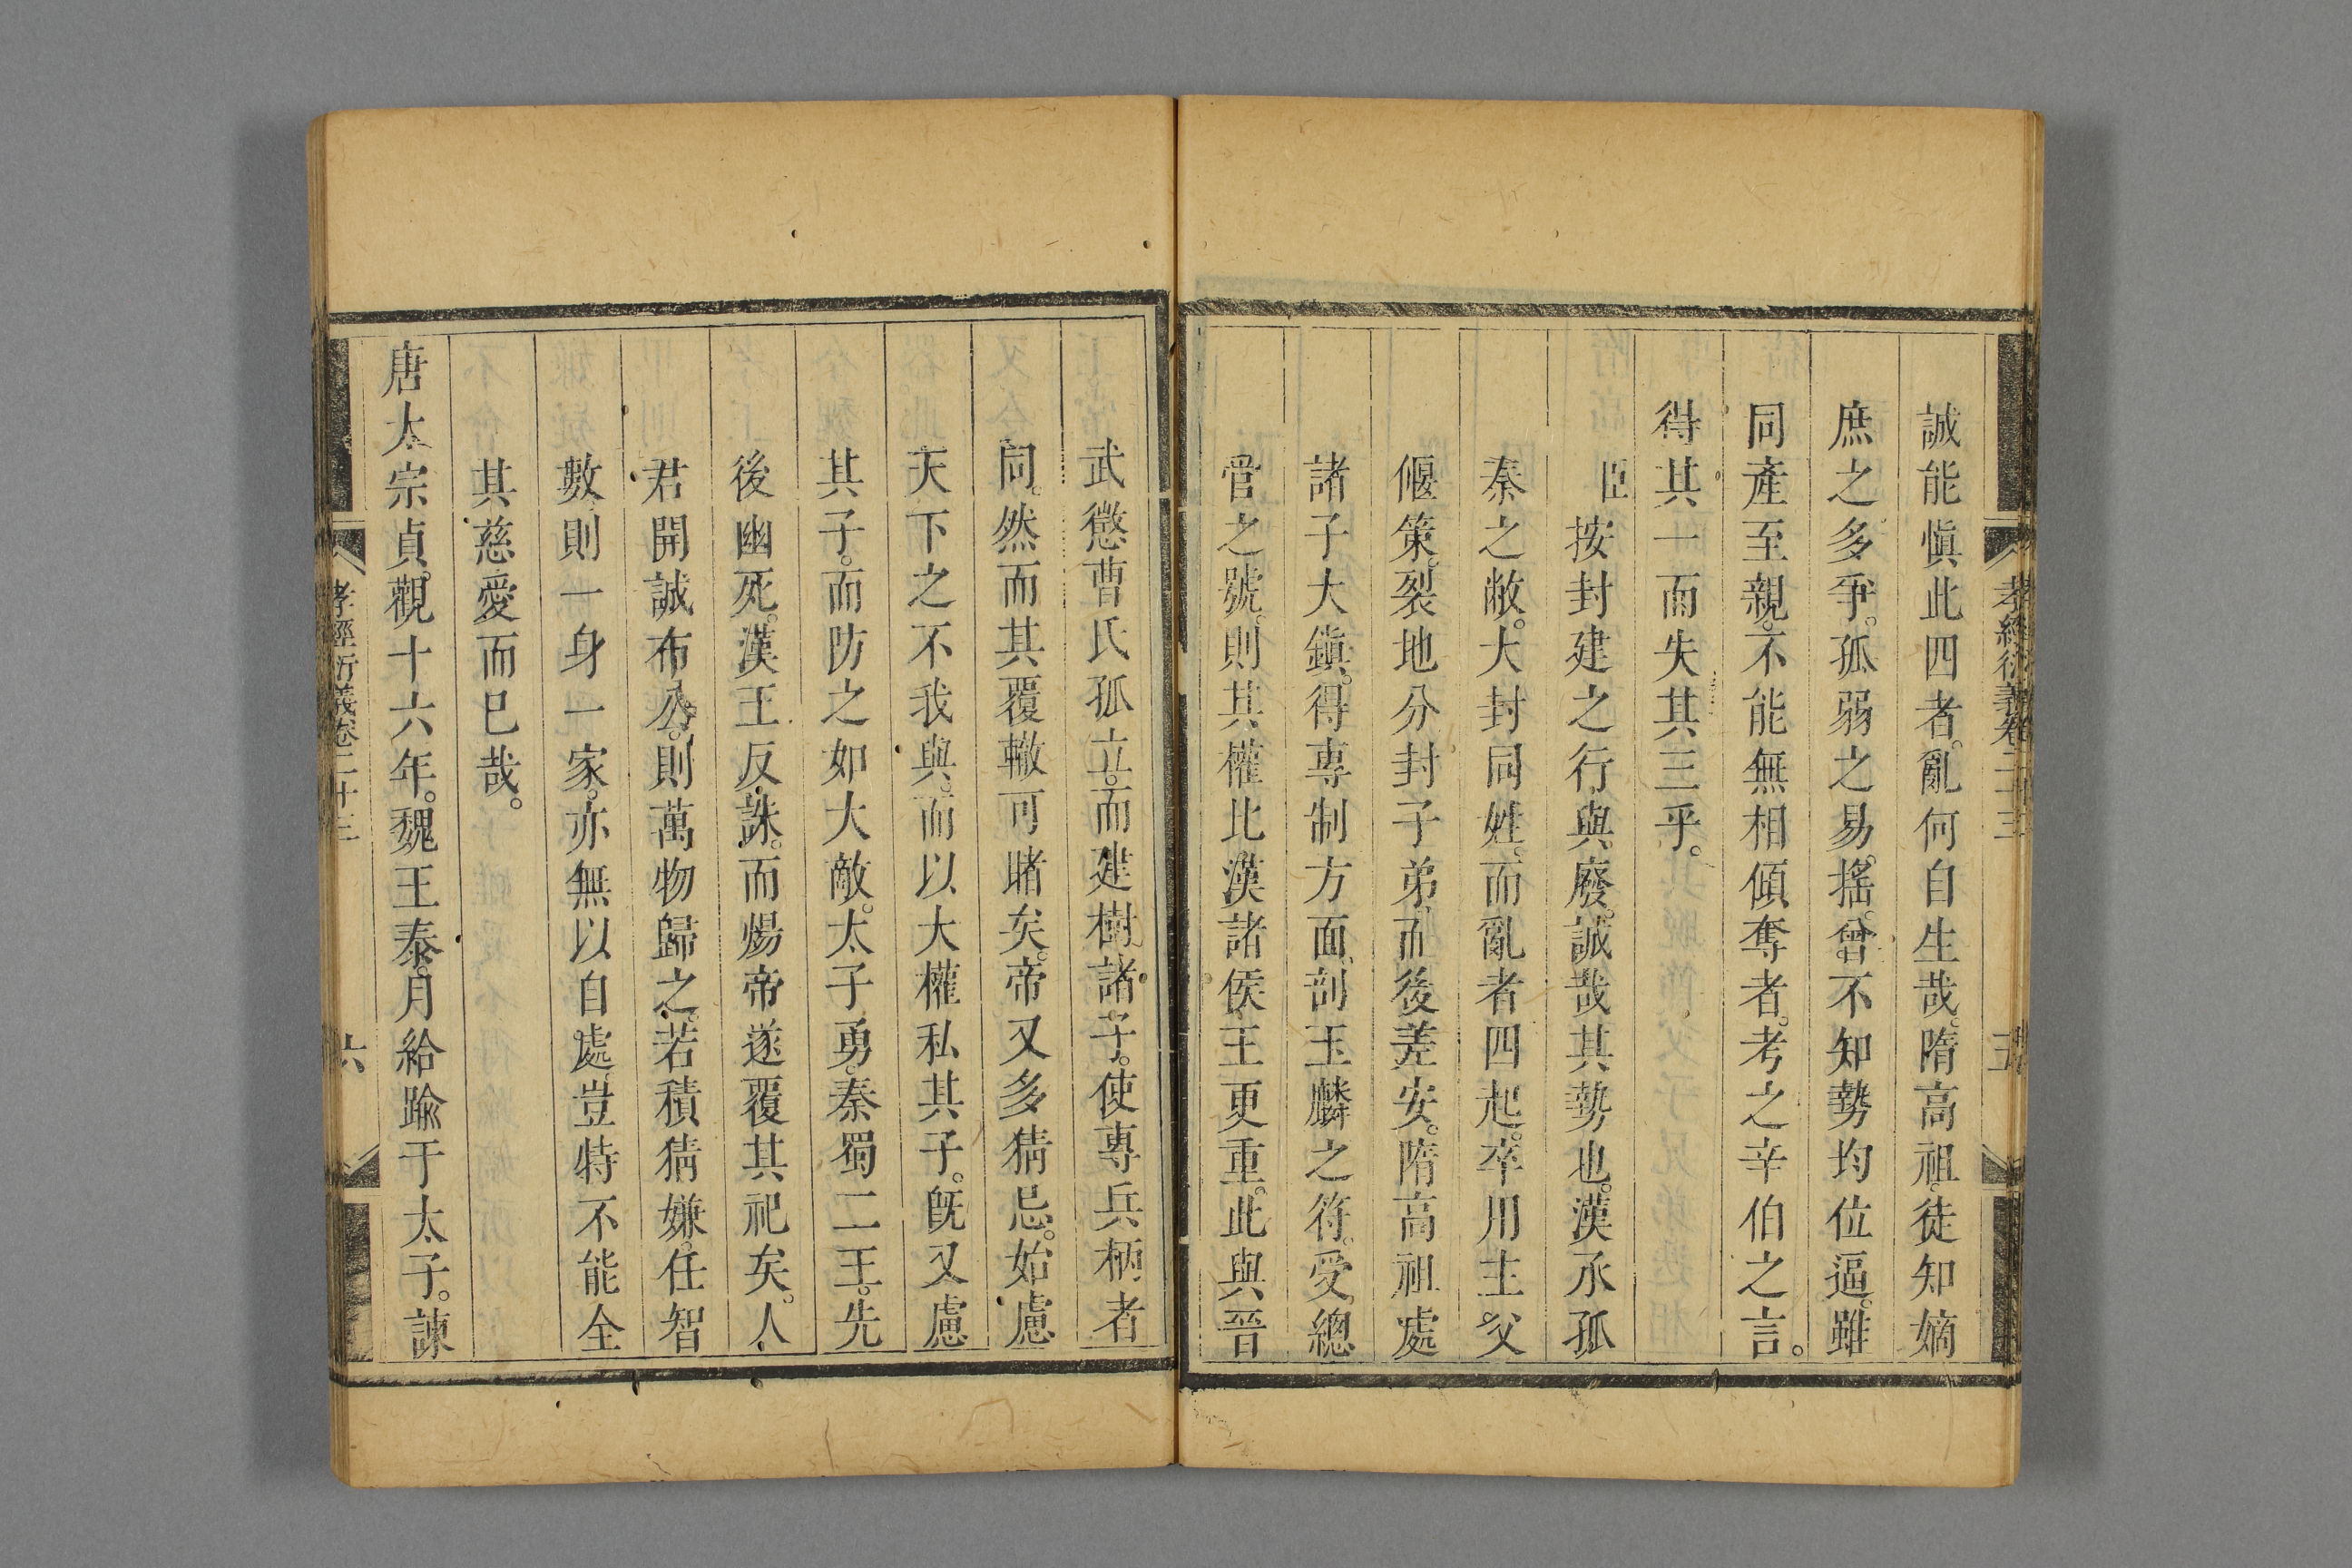 孝經衍義卷二十三
五
誠能愼此四者。亂何自生哉。隋高祖徒知嫡
庶之多爭。孤弱之易。搖。曾不知勢均位逼。雖
同產至親。不能無相傾奪者。考之辛伯之言。
得其一而失其三乎。
臣按封建之行與廢。誠哉其勢也。漢承孤
秦之敝。大封同姓。而亂者四起。卒用主父
偃策。裂地分封子弟。而後差安。隋高祖處
諸子大鎭。得專制方面。剖玉麟之符。受總
管之號。則其權比漢諸侯王更重。此與晉
武懲曹氏孤立。而建樹諸子。使專兵柄者
同。然而其覆轍可睹矣。帝又多猜忌。始慮
天下之不我與。而以大權私其子。旣又慮
其子。而防之如大敵。太子勇。秦蜀二王。先
後幽死。漢王反誅。而煬帝遂覆其祀矣。人
君開誠布公。則萬物歸之。若積猜嫌。任智
數。則一身一家。亦無以自處。豈特不能全
其慈愛而已哉。
唐太宗貞觀十六年。魏王泰。月給踰于太子。諫
孝經衍義卷二十三
六